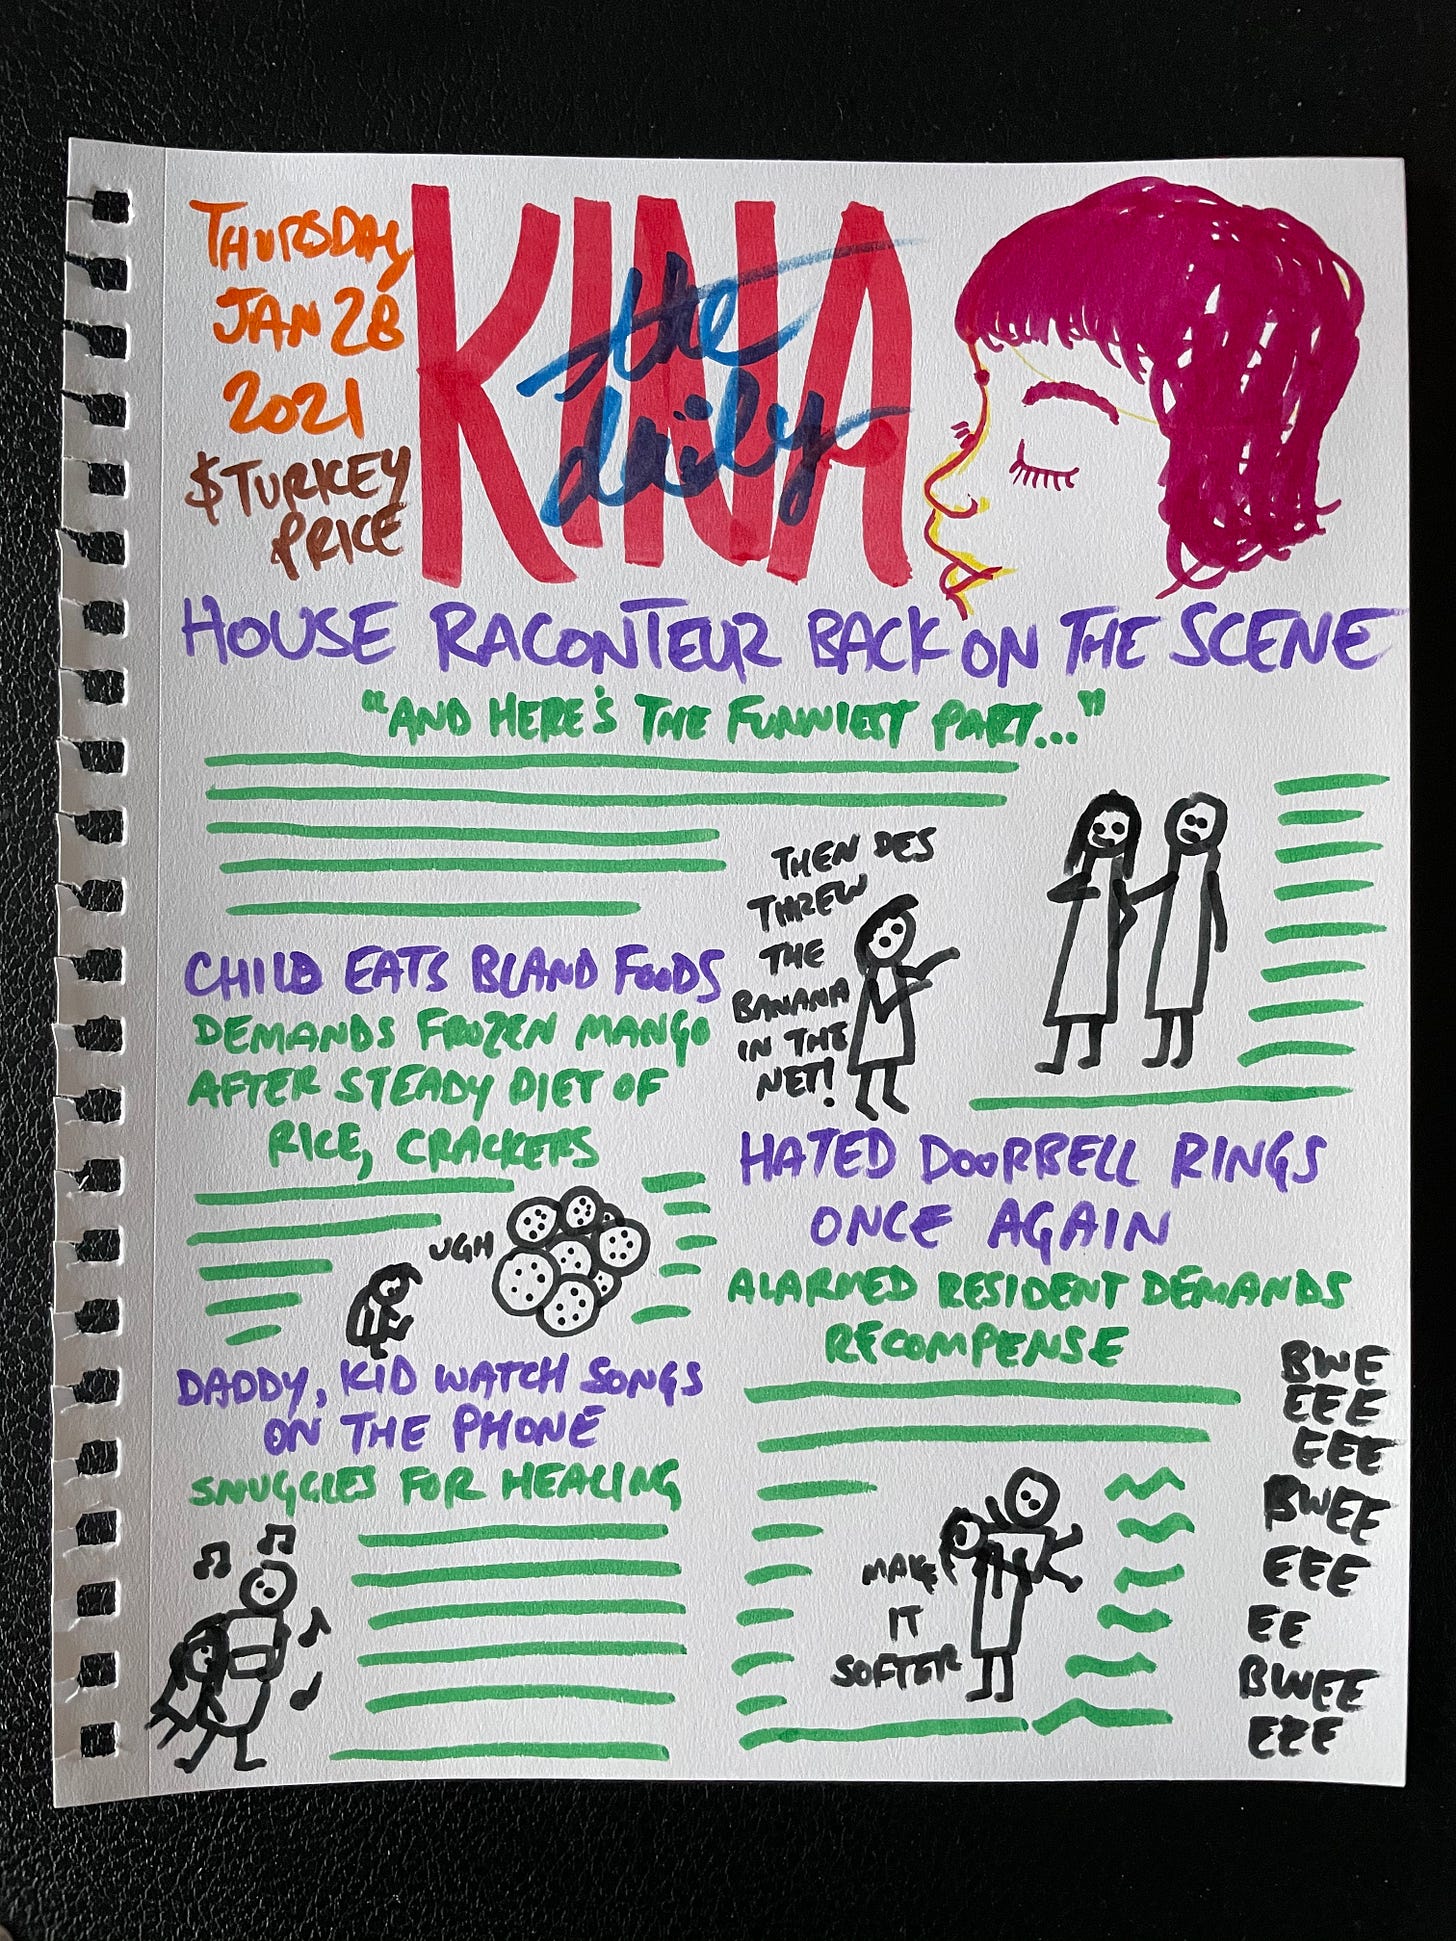 THURSDAY
JAN 28
2021
$TURKEY
PRICE
KINA
the
daily
HOUSE RACONTEUR BACK ON THE SCENE
"AND HERE'S THE FUNNIEST PART..."
THEN DES
THREW
THE
BANANA
IN THE
NET!
CHILD EATS BLAND FOODS
DEMANDS FROZEN MANGO
AFTER STEADY DIET OF
RICE, CRACKERS
UGH
DADDY, KID WATCH SONGS
ON THE PHONE
SNUGGLES FOR HEALING
HATED DOORBELL RINGS
ONCE AGAIN
ALARMED RESIDENT DEMANDS
RECOMPENSE
MAKE
IT
SOFTER
BWE
EEE
EEE
BWEE
EEE
EE
BWEE
EEE